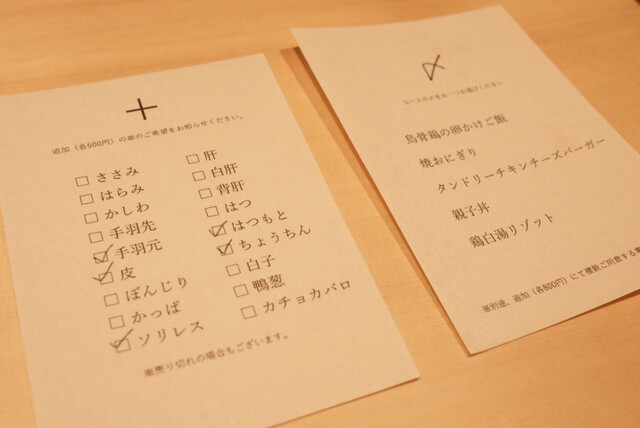 ＋
追加（各500円）の串のご希望をお知らせください。
□ ささみ
□ はらみ
□ かしわ
□ 手羽先
☑ 手羽元
☑ 皮
□ ぼんじり
□ かっぱ
☑ ソリレス
□ 肝
□ 白肝
□ 背肝
□ はつ
☑ はつもと
☑ ちょうちん
□ 白子
□ 鴨葱
□ カチョカバロ
座売り切れの場合もございます。
〆
コースの〆をお一つお選びください
烏骨鶏の卵かけご飯
焼おにぎり
タンドリーチキンチーズバーガー
親子丼
鶏白湯リゾット
追加（各800円）にて複数ご用意する